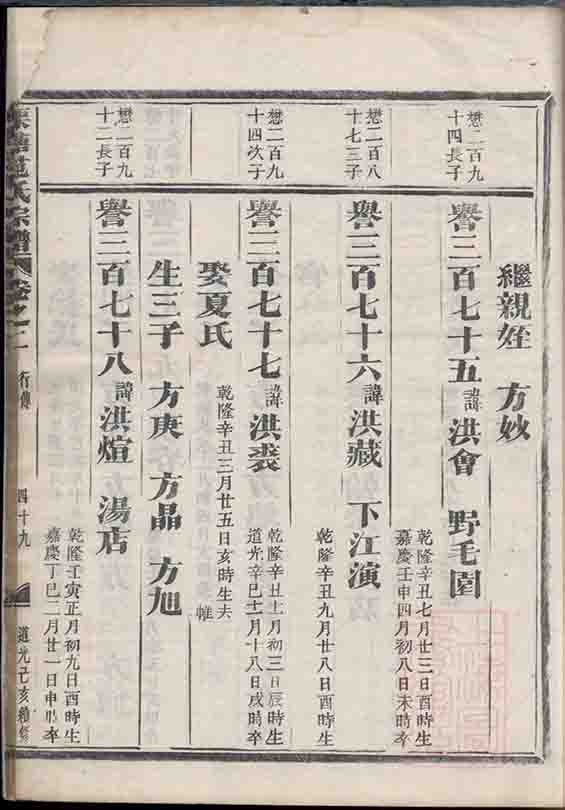 繼親姪 方妙
懋二百九
十四長子
譽三百七十五 諱洪會 野毛園
乾隆辛丑七月廿三日酉時生
嘉慶壬申四月初八日未時卒
懋二百八
十七三子
譽三百七十六 諱洪藏 下江演
乾隆辛丑九月廿八日酉時生
懋二百九
十四次子
譽三百七十七 諱洪裘
乾隆辛丑十一月初三日辰時生
道光辛巳十一月十八日戌時卒
娶夏氏
乾隆辛丑三月廿五日亥時生夫
帷
生三子 方庚 方晶 方旭
懋二百九
十二長子
譽三百七十八 諱洪煊 方湯店
乾隆壬寅正月初九日酉時生
嘉慶丁巳二月廿一日申時卒
氏宗譜 卷之一 行傳 四十九 道光己亥續修